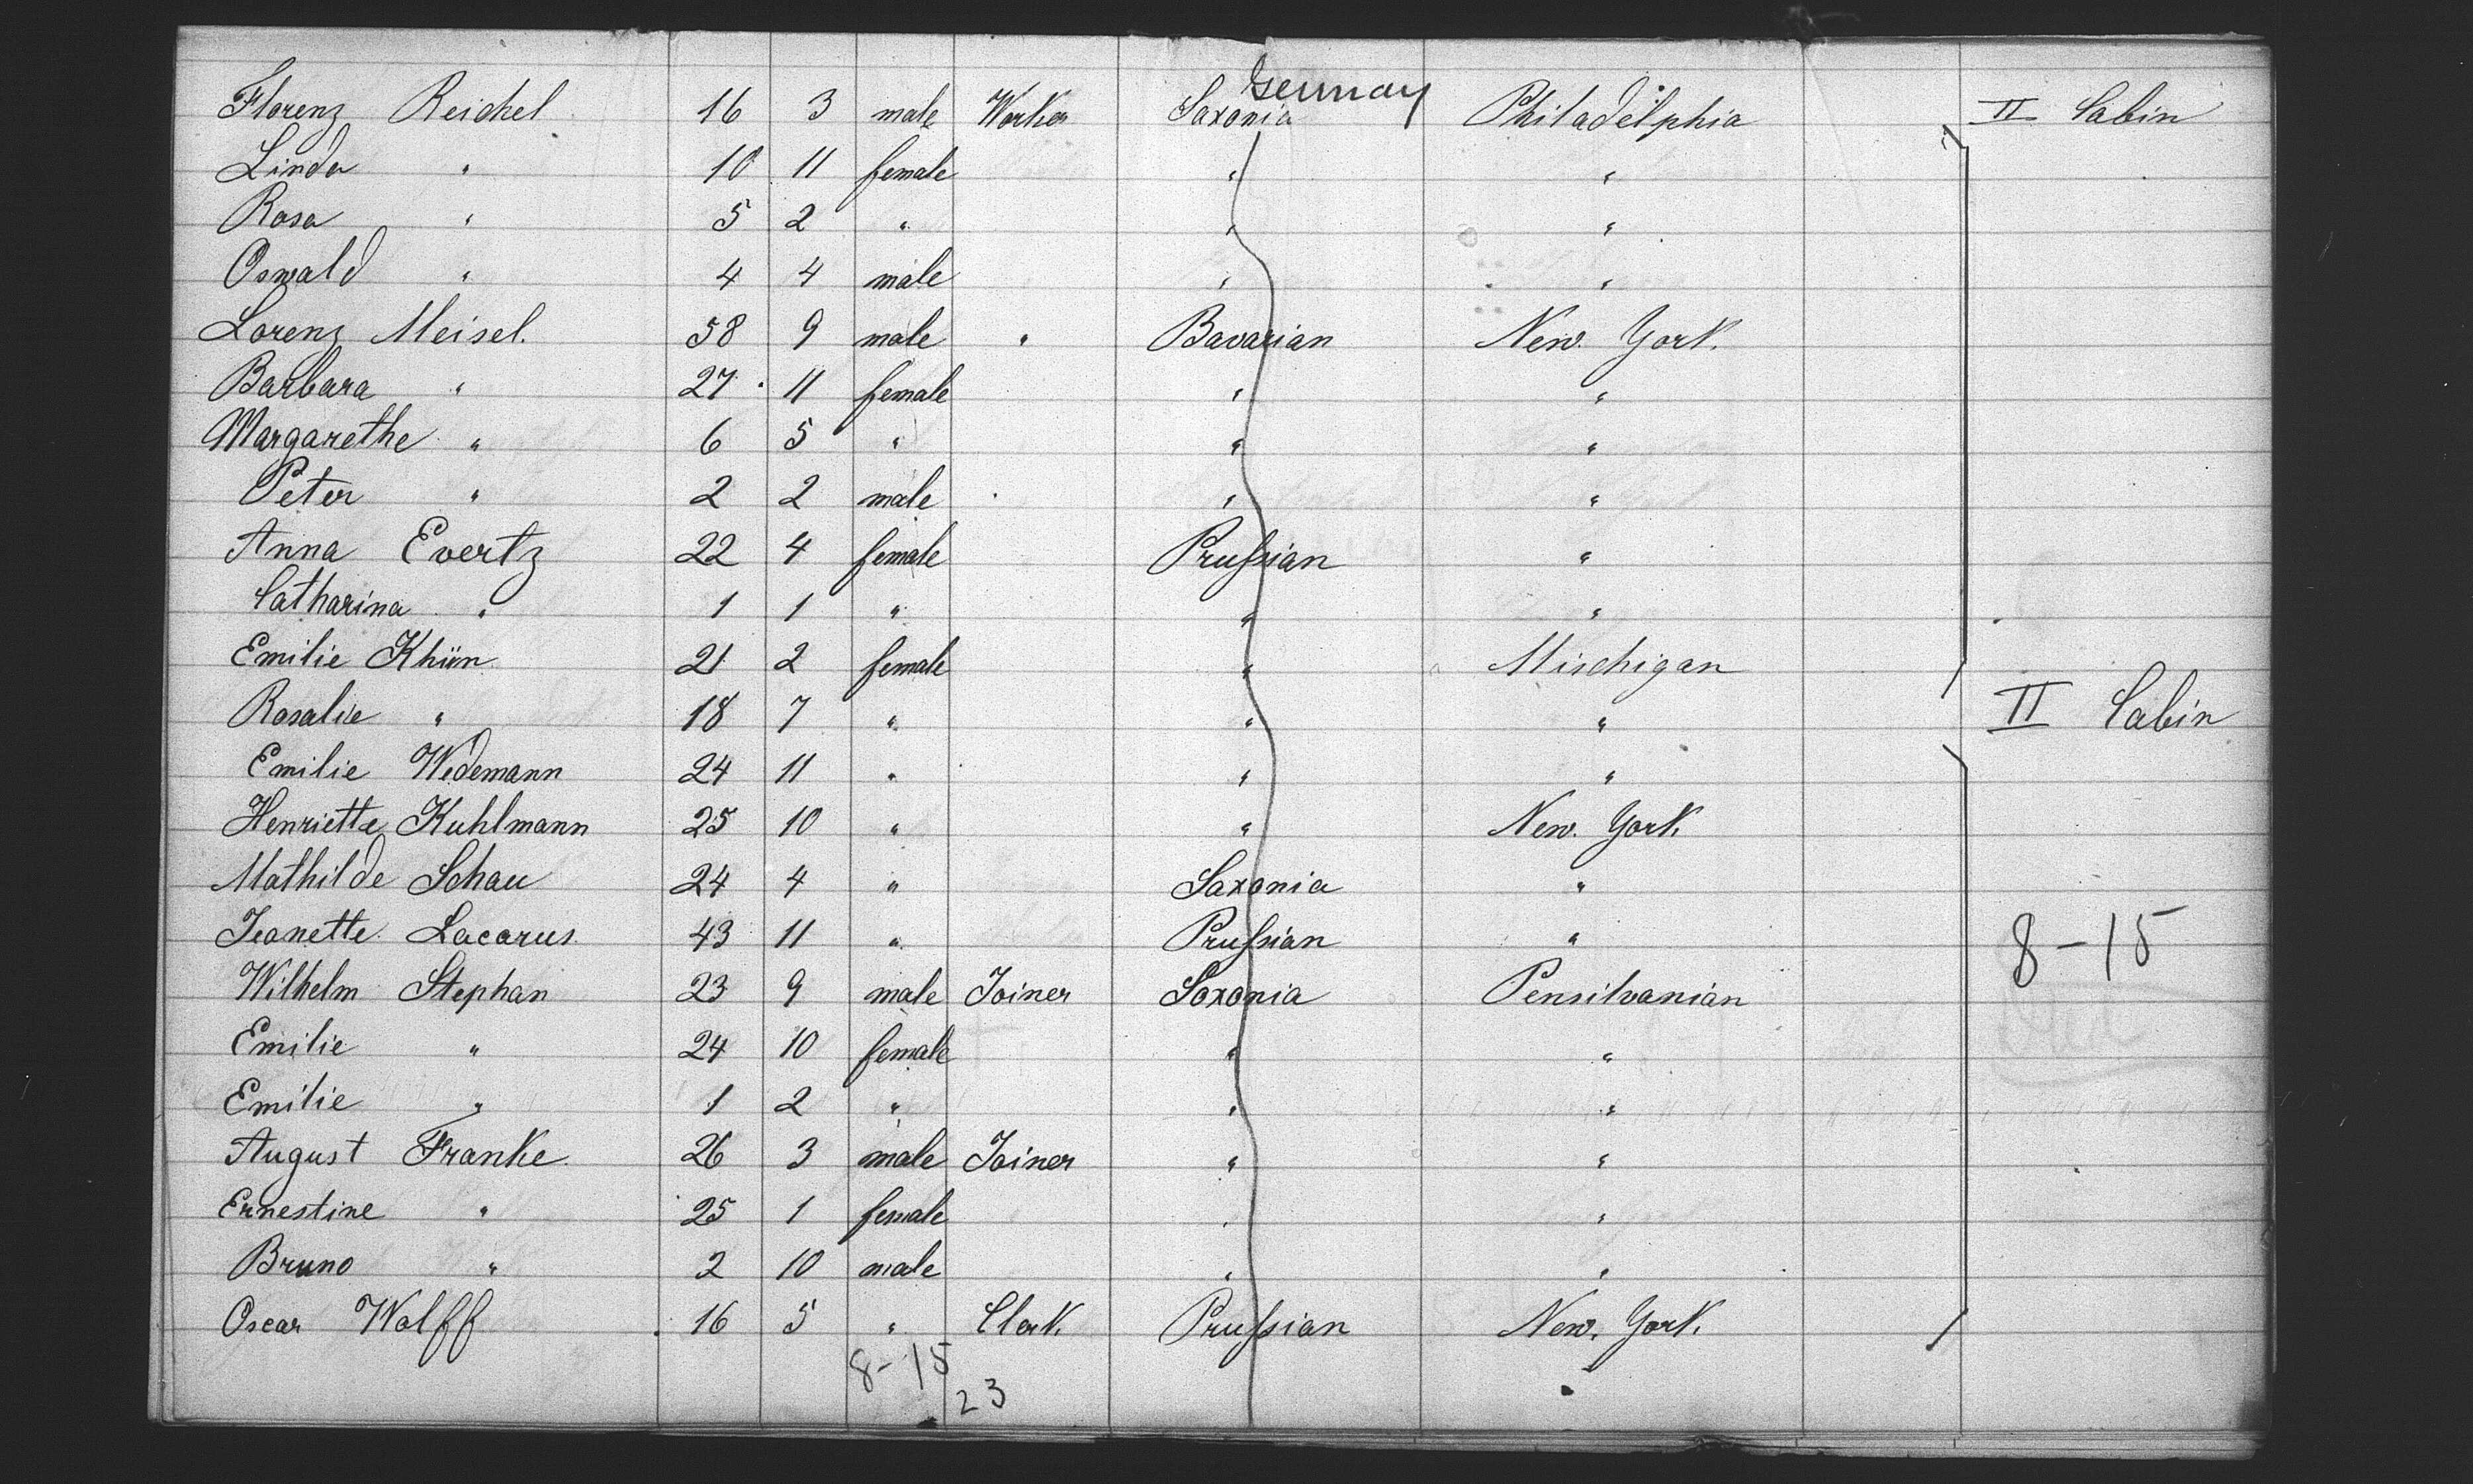 Germany
Florenz Reichel 16 3 male Worker Saxonia Philadelphia II Cabin
Linda " 10 11 female " "
Rosa " 5 2 " " "
Oswald " 4 4 male " "
Lorenz Meisel. 58 9 male " Bavarian New York.
Barbara " 27 11 female " "
Margarethe " 6 5 " " "
Peter " 2 2 male " "
Anna Evertz 22 4 female Prußian "
Catharina " 1 1 " " "
Emilie Khün 21 2 female " Mischigan
Rosalie " 18 7 " " " II Cabin
Emilie Wedemann 24 11 " " "
Henriette Kuhlmann 25 10 " " New. York.
Mathilde Schau 24 4 " Saxonia "
Jeanette Lacarus. 43 11 " Prußian " 8-15
Wilhelm Stephan 23 9 male Joiner Saxonia Pensilvanian
Emilie " 24 10 female " "
Emilie " 1 2 " " "
August Franke. 26 3 male Joiner " "
Ernestine " 25 1 female " "
Bruno " 2 10 male " "
Oscar Wolff 16 5 " Clerk. Prußian New. York.
8-15
23